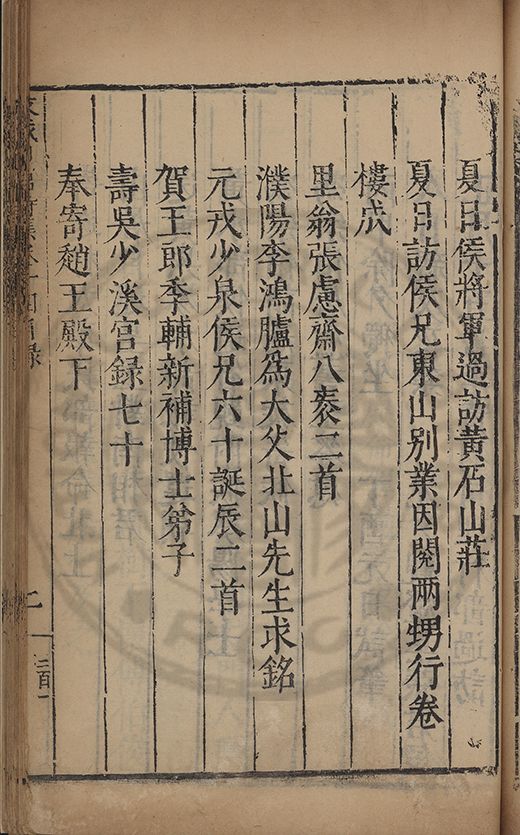 夏日侯將軍過訪黃石山莊
夏日訪侯兄東山別業因閱兩甥行卷
樓成
里翁張慮齋八袠二首
濮陽李鴻臚為大父北山先生求銘
元戎少泉侯兄六十誕辰二首
賀王郎李輔新補博士弟子
壽吳少溪宫録七十
奉寄趙王殿下
二
三百一